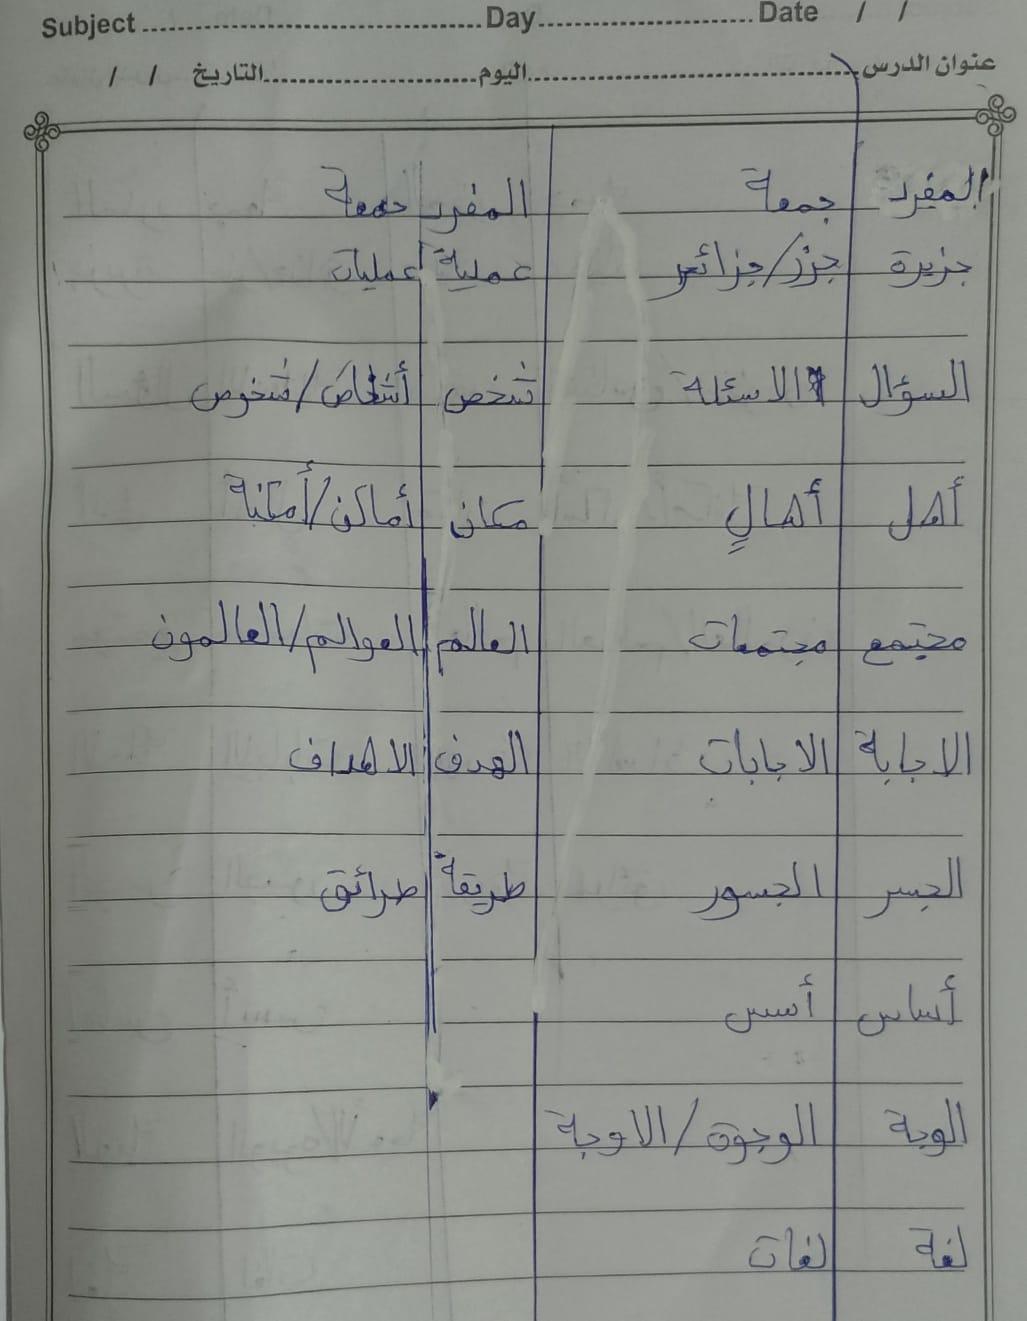 Subject ........ Day ........ Date / /
عنوان الدرس ........ اليوم ........ التاريخ / /
المفرد جمعة المفرد جمعة
جزيرة جزر/جزائر عملية عمليات
السؤال الاسئلة شخص أشخاص/شخوص
أهل أهالٍ مكان أماكن/أمكنة
مجتمع مجتمعات العالم العوالم/العالمون
الاجابة الاجابات الهدف الاهداف
الجسر الجسور طريقة طرائق
أساس أسس
الوجة الوجوة/الاوجة
لغة لغات